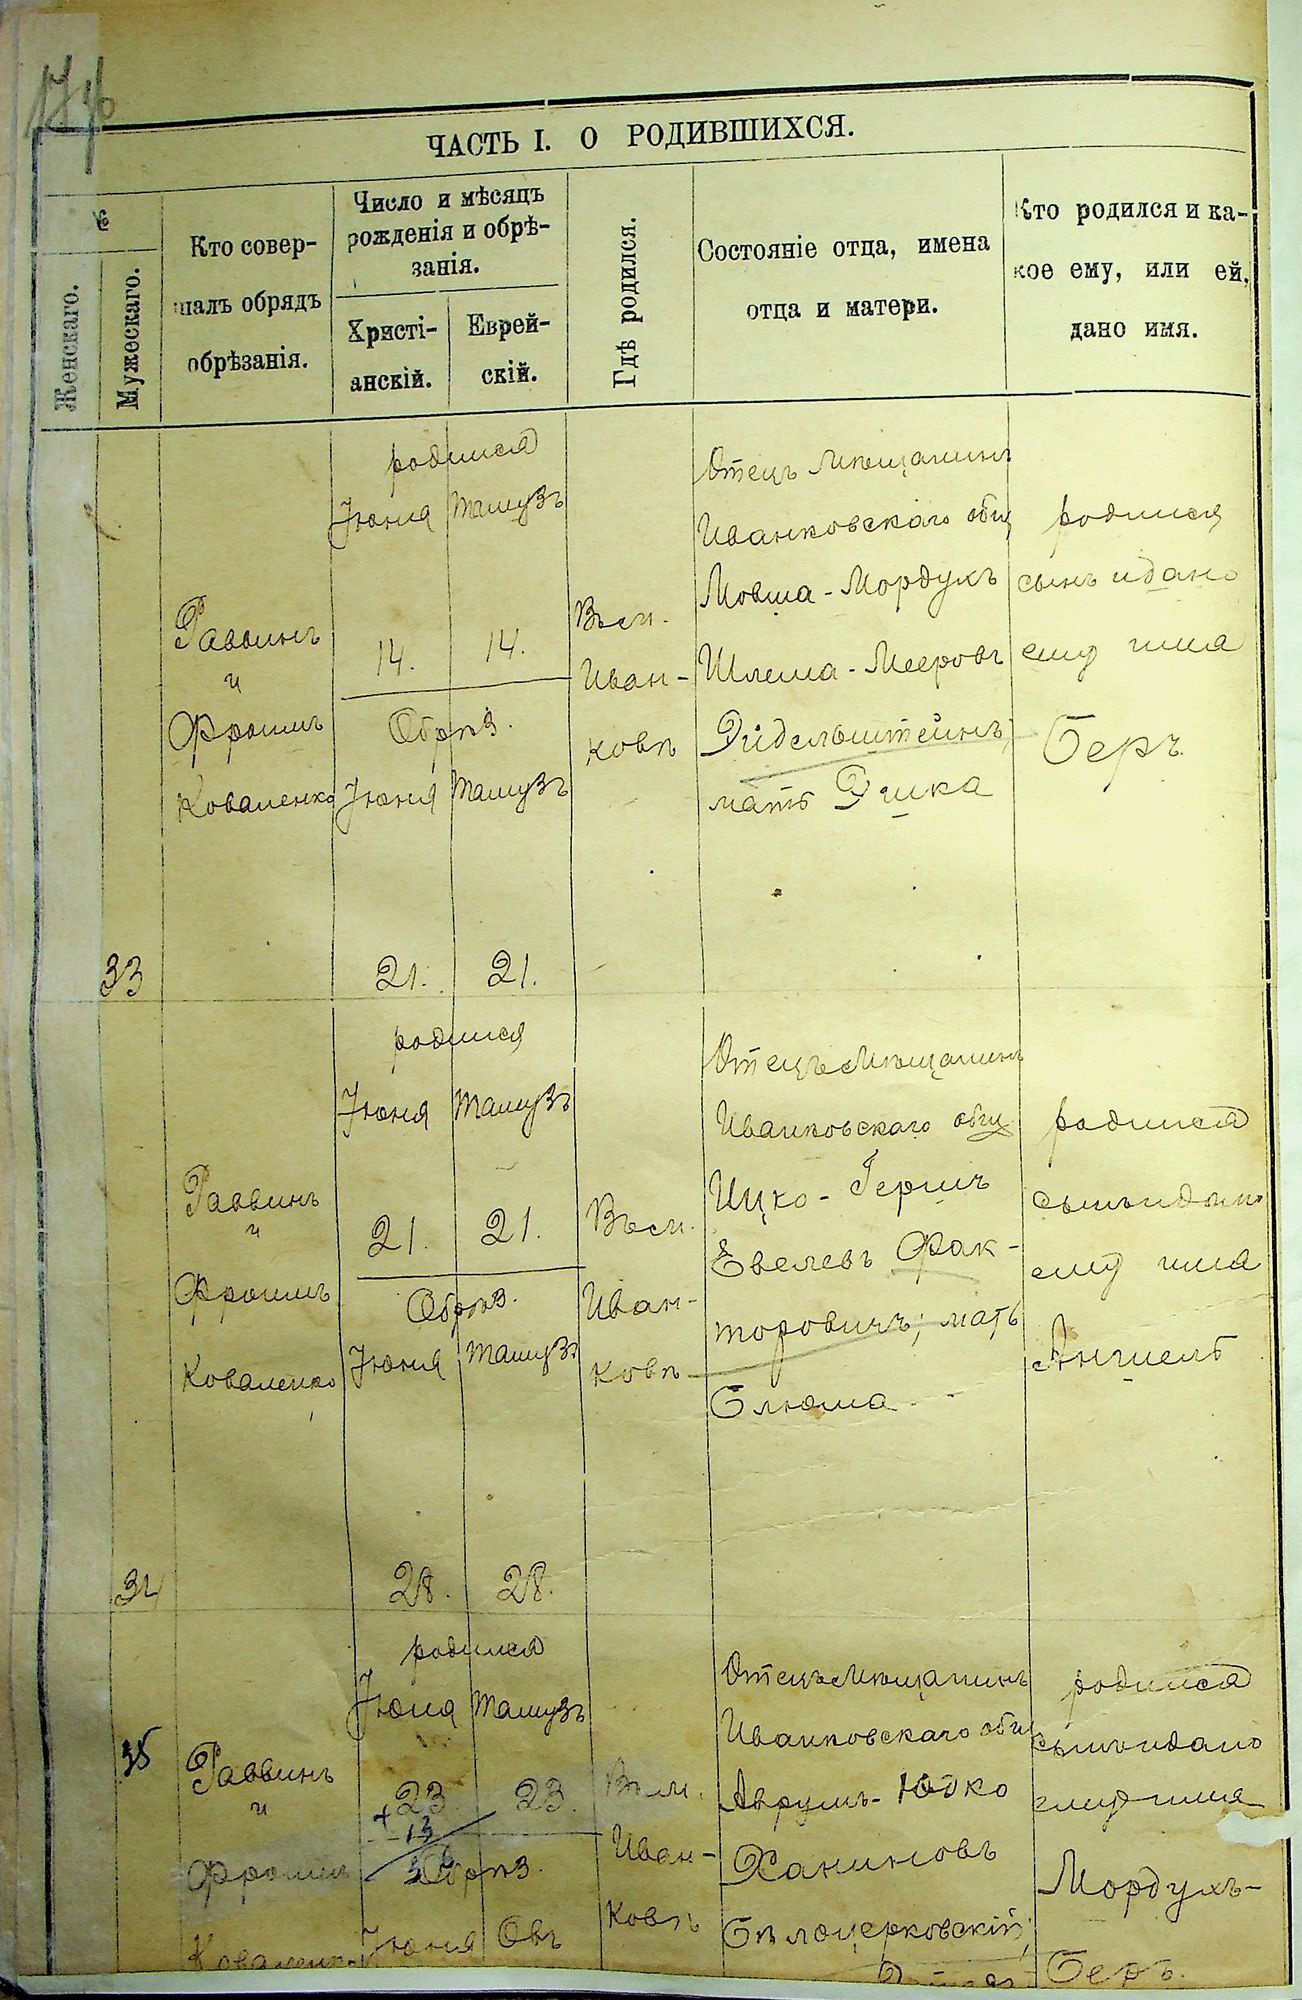 ЧАСТЬ I. О РОДИВШИХСЯ.
№
Женскаго.
Мужескаго.
Кто совер-
шалъ обрядъ
обрѣзанія.
Число и мѣсяцъ
рожденія и обрѣ-
занія.
Христі-
анскій.
Еврей-
скій.
Гдѣ родился.
Состояніе отца, имена
отца и матери.
Кто родился и ка-
кое ему, или ей,
дано имя.
33
Раввинъ
и
Фроимъ
Коваленко
родился
Іюня Тамузъ
14. 14.
Обрѣз.
Іюня Тамузъ
21. 21.
Въ м.
Иван-
ковѣ
Отецъ Мѣщанинъ
Иванковскаго общ
Мовша-Мордухъ
Шлема-Мееровъ
Эйдельштейнъ;
мать Эшка
родился
сынъ и дано
ему имя
Беръ
34
Раввинъ
и
Фроимъ
Коваленко
родился
Іюня Тамузъ
21. 21.
Обрѣз.
Іюня Тамузъ
28. 28.
Въ м.
Иван-
ковѣ
Отецъ Мѣщанинъ
Иванковскаго общ
Ицко-Гершъ
Евелевъ Фак-
торовичъ; мать
Блюма
родился
сынъ и дано
ему имя
Аншель
35
Раввинъ
и
Фроимъ
Коваленко
родился
Іюня Тамузъ
23. 23.
+13
Обрѣз.
Іюня Овъ
Въ м.
Иван-
ковѣ
Отецъ Мѣщанинъ
Иванковскаго общ
Аврумъ-Юдко
Ханиновъ
Бѣлоцерковскій;
родился
сынъ и дано
ему имя
Мордухъ-
Беръ.